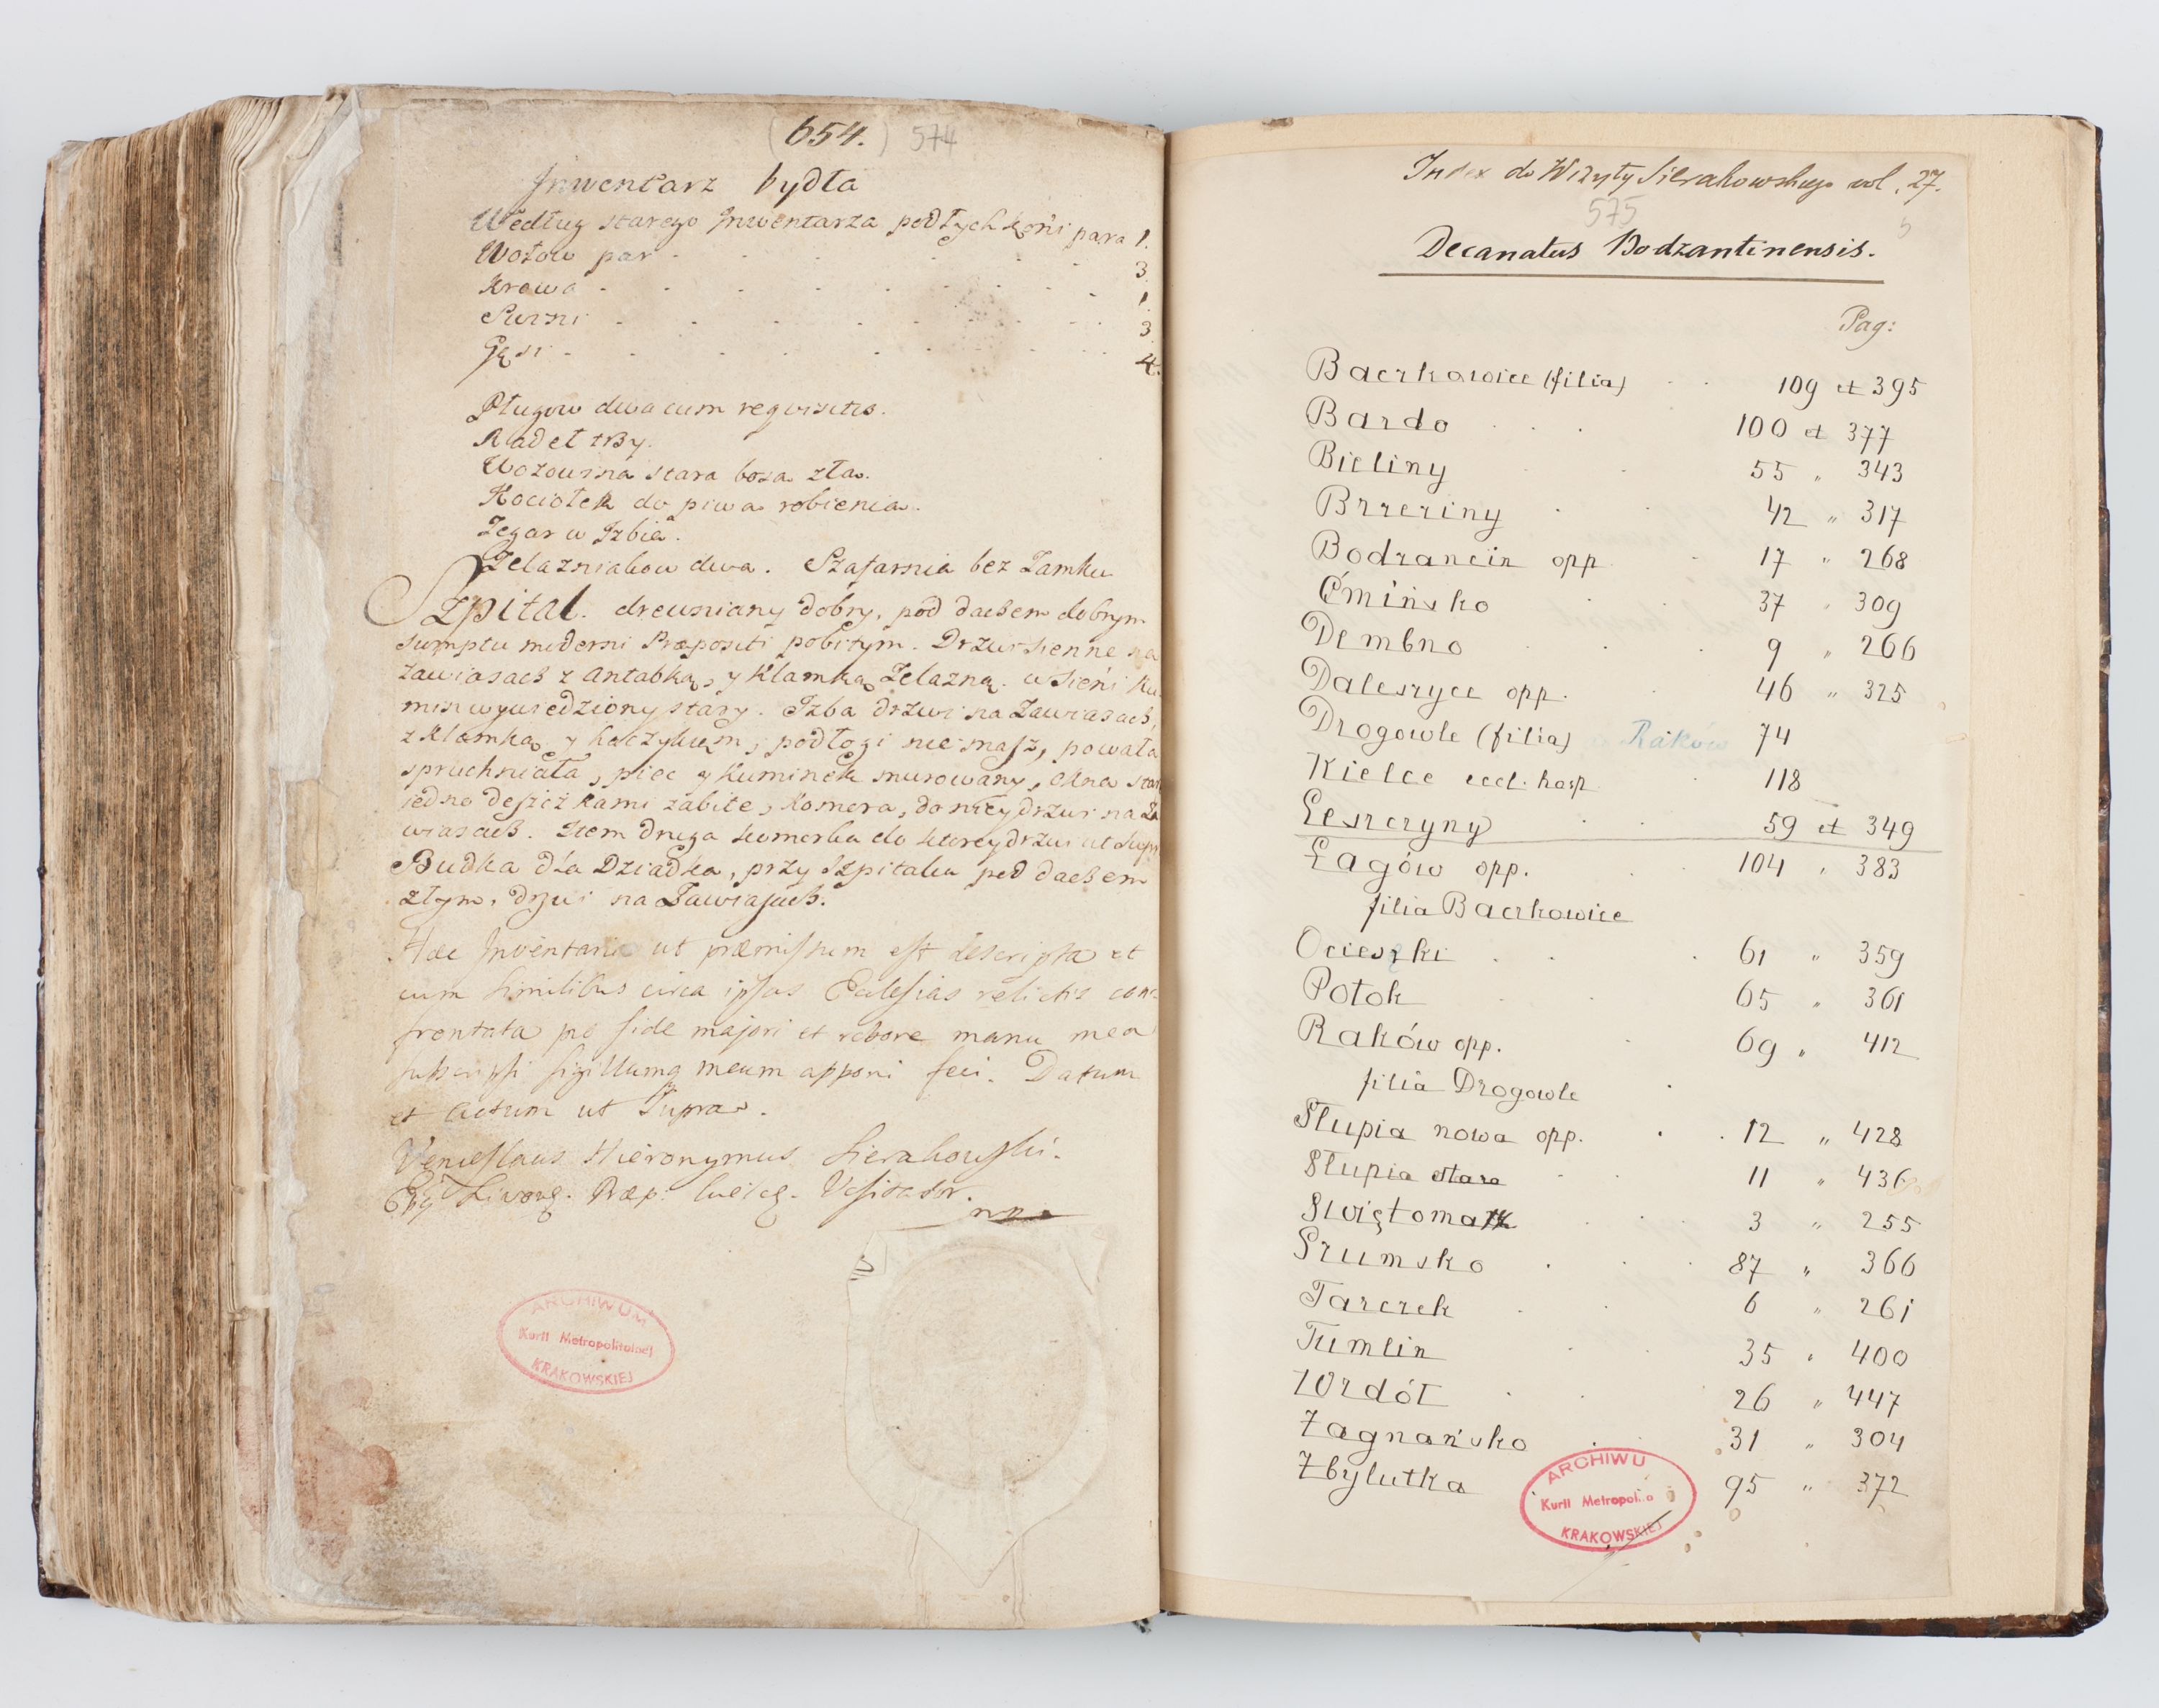 (654.) 574
Inwentarz bydła
Według starego Inwentarza podłych koni para 1.
Wołow par 3
Krowa 1.
Swini 3
Gęsi 4.
Pługow dwa cum requisitis.
Radeł trzy.
Wozowina stara bosa zła.
Kociołek do piwa robienia.
Zegar w Izbie.
Zelazniakow dwa. Szafarnia bez Zamku
Szpital. drewniany dobry, pod dachem dobrym
sumptu moderni Præpositi pobitym. Drzwi sienne na
zawiasach z Antabką, y Klamką Zelazną. w Sieni Ku
min wywiedziony stary. Izba drzwi na Zawiasach,
z Klamką y haczykiem, podłogi nie masz, powała
spruchniała, piec y Kuminek murowany, okna star
jedno deszczkami zabite, Komora, do niey drzwi na Za
wiasach. Item druga komorka do ktorey drzwi ut supr
Budka dla Dziadka, przy Szpitalu pod dachem
złym, drzwi na Zawiasach.
Hæc Inventaria ut præmissum est descripta et
cum similibus circa ipsas Ecclesias relictis con-
frontata pro fide majori et robore manu mea
subscripsi sigillumq meum apponi feci. Datum
et Actum ut Supra.
Venceslaus Hieronymus Sierakowski.
Livon. Præp: Visitator.
mp
ARCHIWUM
Kurii Metropolitalnej
KRAKOWSKIEJ
Index do Wizyty Sierakowskiego vol. 27.
575
Decanatus Bodzantinensis.
Pag:
Baczkowice (filia) 109 et 395
Bardo 100 et 377
Bieliny 55 „ 343
Brzeziny 42 „ 317
Bodzancin opp 17 „ 268
Ćmińsko 37 „ 309
Dembno 9 „ 266
Daleszyce opp. 46 „ 325
Drogowle (filia) Raków 74
Kielce eccl. hosp 118
Leszczyny 59 et 349
Łagów opp. 104 „ 383
filia Baczkowice
Ocieszki 61 „ 359
Potok 65 „ 361
Raków opp. 69 „ 412
filia Drogowle
Słupia nowa opp. 12 „ 428
Słupia stara 11 „ 436
Swiętomarz 3 „ 255
Szumsko 87 „ 366
Tarczek 6 „ 261
Tumlin 35 „ 400
Wzdół 26 „ 447
Zagnańsko 31 „ 304
Zbylutka 95 „ 372
ARCHIWU
Kurii Metropol
KRAKOWSKIEJ